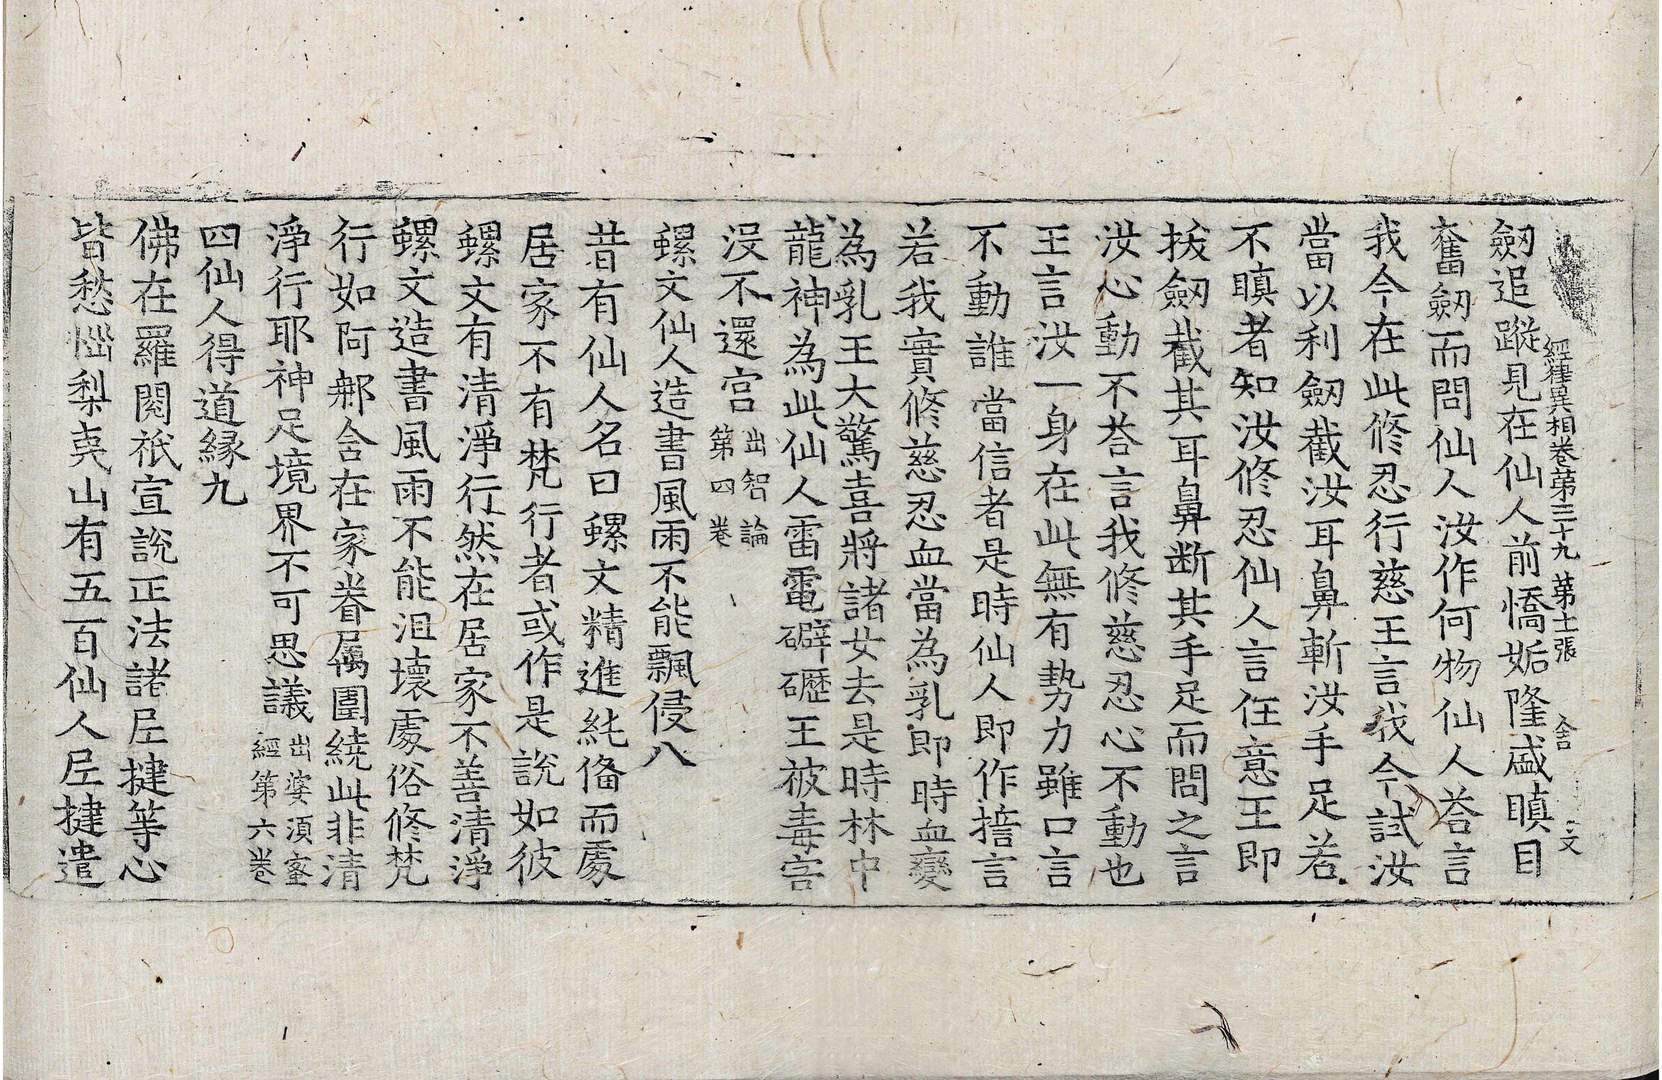 經律異相卷第三十九 第十二張 舍 文
劒追蹤見在仙人前憍妬隆盛瞋目
奮劒而問仙人汝作何物仙人荅言
我今在此修忍行慈王言我今試汝
當以利劒截汝耳鼻斬汝手足若
不瞋者知汝修忍仙人言任意王即
拔劒截其耳鼻断其手足而問之言
汝心動不荅言我修慈忍心不動也
王言汝一身在此無有勢力雖口言
不動誰當信者是時仙人即作擔言
若我實修慈忍血當為乳即時血變
為乳王大驚喜將諸女去是時林中
龍神為此仙人雷電礔礰王被毒害
没不還宫 出智論第四卷
螺文仙人造書風雨不能飄侵八
昔有仙人名曰螺文精進純備而處
居家不有梵行者或作是說如彼
螺文有清淨行然在居家不善清淨
螺文造書風雨不能沮壞處俗修梵
行如阿𨚗含在家眷属圍繞此非清
淨行耶神足境界不可思議 出婆湏蜜經第六卷
四仙人得道縁九
佛在羅閱祇宣說正法諸𡰱揵等心
皆愁惱梨夷山有五百仙人𡰱揵遣